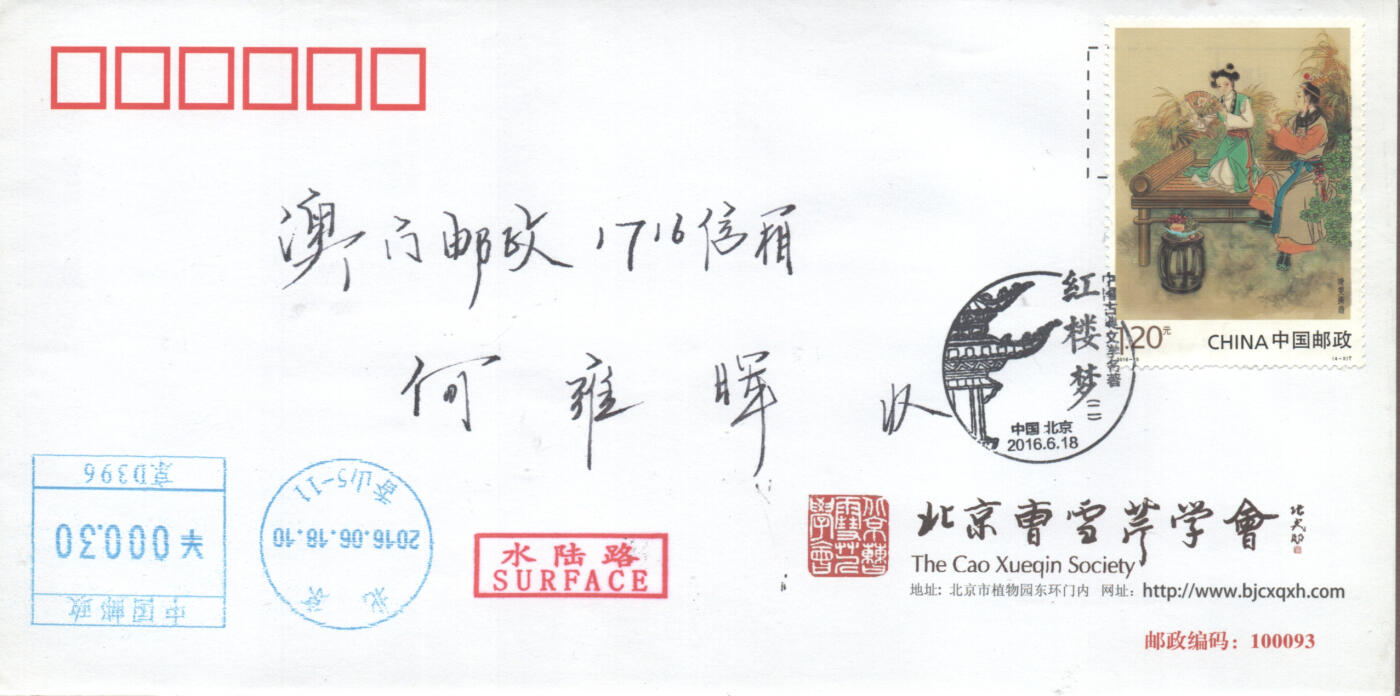 澳门邮政1716信箱
何雍晖 收
1.20元
CHINA中国邮政
中国古典文学名著
红楼梦(二)
中国 北京
2016.6.18
京D396
¥000.30
中国邮政
香山5-11
2016.06.18.10
北京
水陆路
SURFACE
北京曹雪芹学会
北京曹雪芹学會
The Cao Xueqin Society
地址: 北京市植物园东环门内 网址: http://www.bjcxqxh.com
邮政编码: 100093